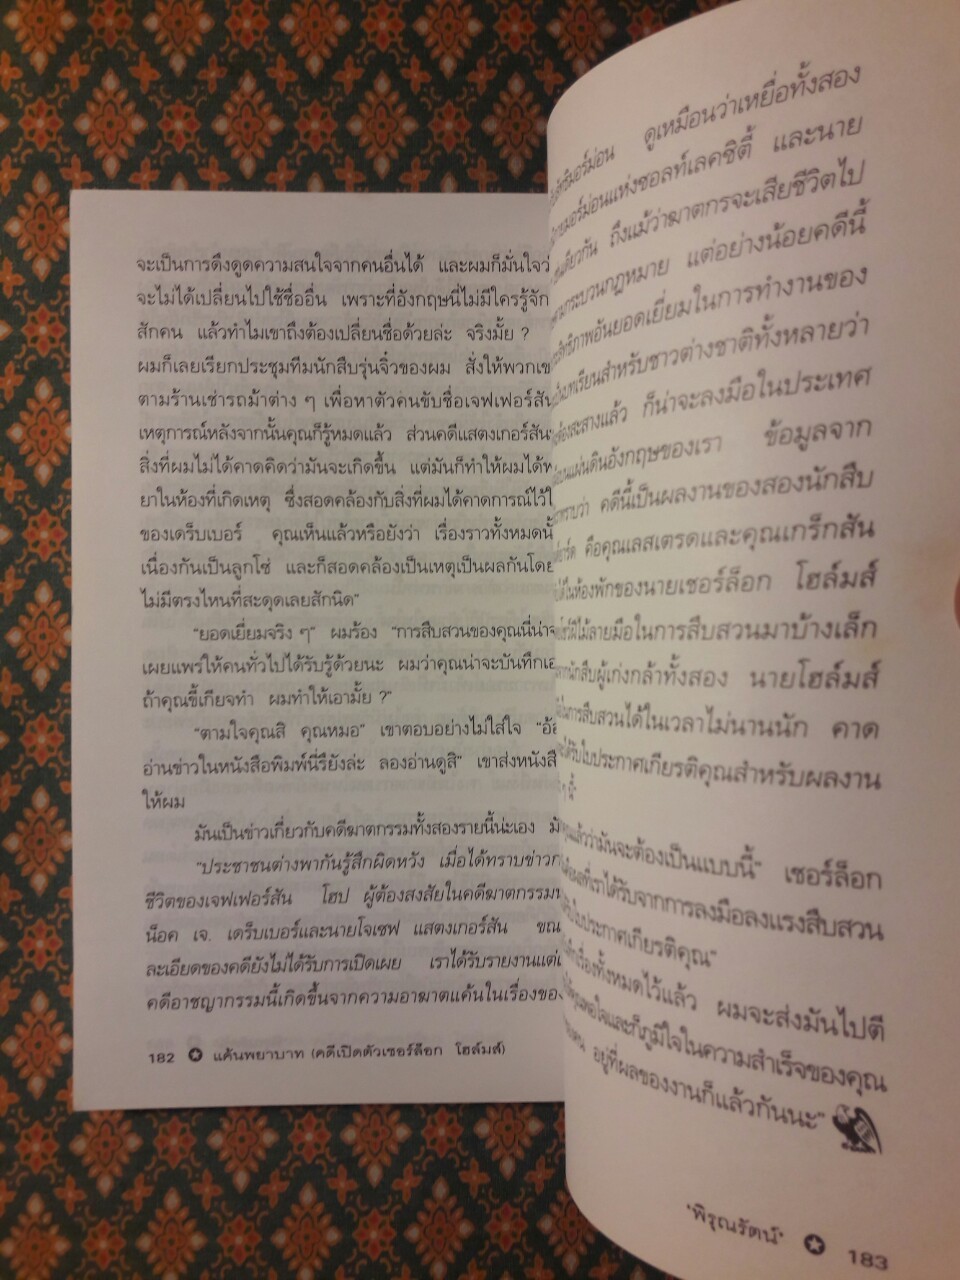 จะเป็นการดึงดูดความสนใจจากคนอื่นได้ และผมก็มั่นใจว่
จะไม่ได้เปลี่ยนไปใช้ชื่ออื่น เพราะที่อังกฤษนี่ไม่มีใครรู้จัก
สักคน แล้วทำไมเขาถึงต้องเปลี่ยนชื่อด้วยล่ะ จริงมั้ย ?
ผมก็เลยเรียกประชุมทีมนักสืบรุ่นจิ๋วของผม สั่งให้พวกเข
ตามร้านเช่ารถม้าต่าง ๆ เพื่อหาตัวคนขับชื่อเจฟเฟอร์สัน
เหตุการณ์หลังจากนั้นคุณก็รู้หมดแล้ว ส่วนคดีแสตงเกอร์สัน
สิ่งที่ผมไม่ได้คาดคิดว่ามันจะเกิดขึ้น แต่มันก็ทำให้ผมได้
ยาในห้องที่เกิดเหตุ ซึ่งสอดคล้องกับสิ่งที่ผมได้คาดการณ์ไว้
ของเดร็บเบอร์ คุณเห็นแล้วหรือยังว่า เรื่องราวทั้งหมด
เนื่องกันเป็นลูกโซ่ และก็สอดคล้องเป็นเหตุเป็นผลกันโดย
ไม่มีตรงไหนที่สะดุดเลยสักนิด"
"ยอดเยี่ยมจริง ๆ" ผมร้อง "การสืบสวนของคุณนี่น่าจ
เผยแพร่ให้คนทั่วไปได้รับรู้ด้วยนะ ผมว่าคุณน่าจะบันทึก
ถ้าคุณขี้เกียจทำ ผมทำให้เอามั้ย ?"
"ตามใจคุณสิ คุณหมอ" เขาตอบอย่างไม่ใส่ใจ
อ่านข่าวในหนังสือพิมพ์นี่รึยังล่ะ ลองอ่านดูสิ" เขาส่งหนังสื
ให้ผม
มันเป็นข่าวเกี่ยวกับคดีฆาตกรรมทั้งสองรายนี้น่ะเอง
"ประชาชนต่างพากันรู้สึกผิดหวัง เมื่อได้ทราบข่าว
ชีวิตของเจฟเฟอร์สัน โฮป ผู้ต้องสงสัยในคดีฆาตกรรม
น็อค เจ. เดร็บเบอร์และนายโจเซฟ แสตงเกอร์สัน ขณ
ละเอียดของคดียังไม่ได้รับการเปิดเผย เราได้รับรายงานแต่
คดีอาชญากรรมนี้เกิดขึ้นจากความอาฆาตแค้นในเรื่องของ
182 แค้นพยาบาท (คดีเปิดตัวเชอร์ล็อก โฮล์มส์)
ดูเหมือนว่าเหยื่อทั้งสอง
มอร์ม่อนแห่งซอลท์เลคซิตี้ และนาย
เดียวกัน ถึงแม้ว่าฆาตกรจะเสียชีวิตไป
กระบวนกฎหมาย แต่อย่างน้อยคดีนี้
สิทธิภาพอันยอดเยี่ยมในการทำงานของ
บทเรียนสำหรับชาวต่างชาติทั้งหลายว่า
สะสางแล้ว ก็น่าจะลงมือในประเทศ
แผ่นดินอังกฤษของเรา ข้อมูลจาก
ทราบว่า คดีนี้เป็นผลงานของสองนักสืบ
คือคุณเลสเตรดและคุณเกร็กสัน
ได้ในห้องพักของนายเชอร์ล็อก โฮล์มส์
ฝีไม้ลายมือในการสืบสวนมาบ้างเล็ก
นักสืบผู้เก่งกล้าทั้งสอง นายโฮล์มส์
การสืบสวนได้ในเวลาไม่นานนัก คาด
ได้รับใบประกาศเกียรติคุณสำหรับผลงาน
ๆ นี้"
แล้วว่ามันจะต้องเป็นแบบนี้" เชอร์ล็อก
ผลที่เราได้รับจากการลงมือลงแรงสืบสวน
ใบประกาศเกียรติคุณ"
เรื่องทั้งหมดไว้แล้ว ผมจะส่งมันไปตี
พอใจและก็ภูมิใจในความสำเร็จของคุณ
อยู่ที่ผลของงานก็แล้วกันนะ"
"พิรุณรัตน์" 183